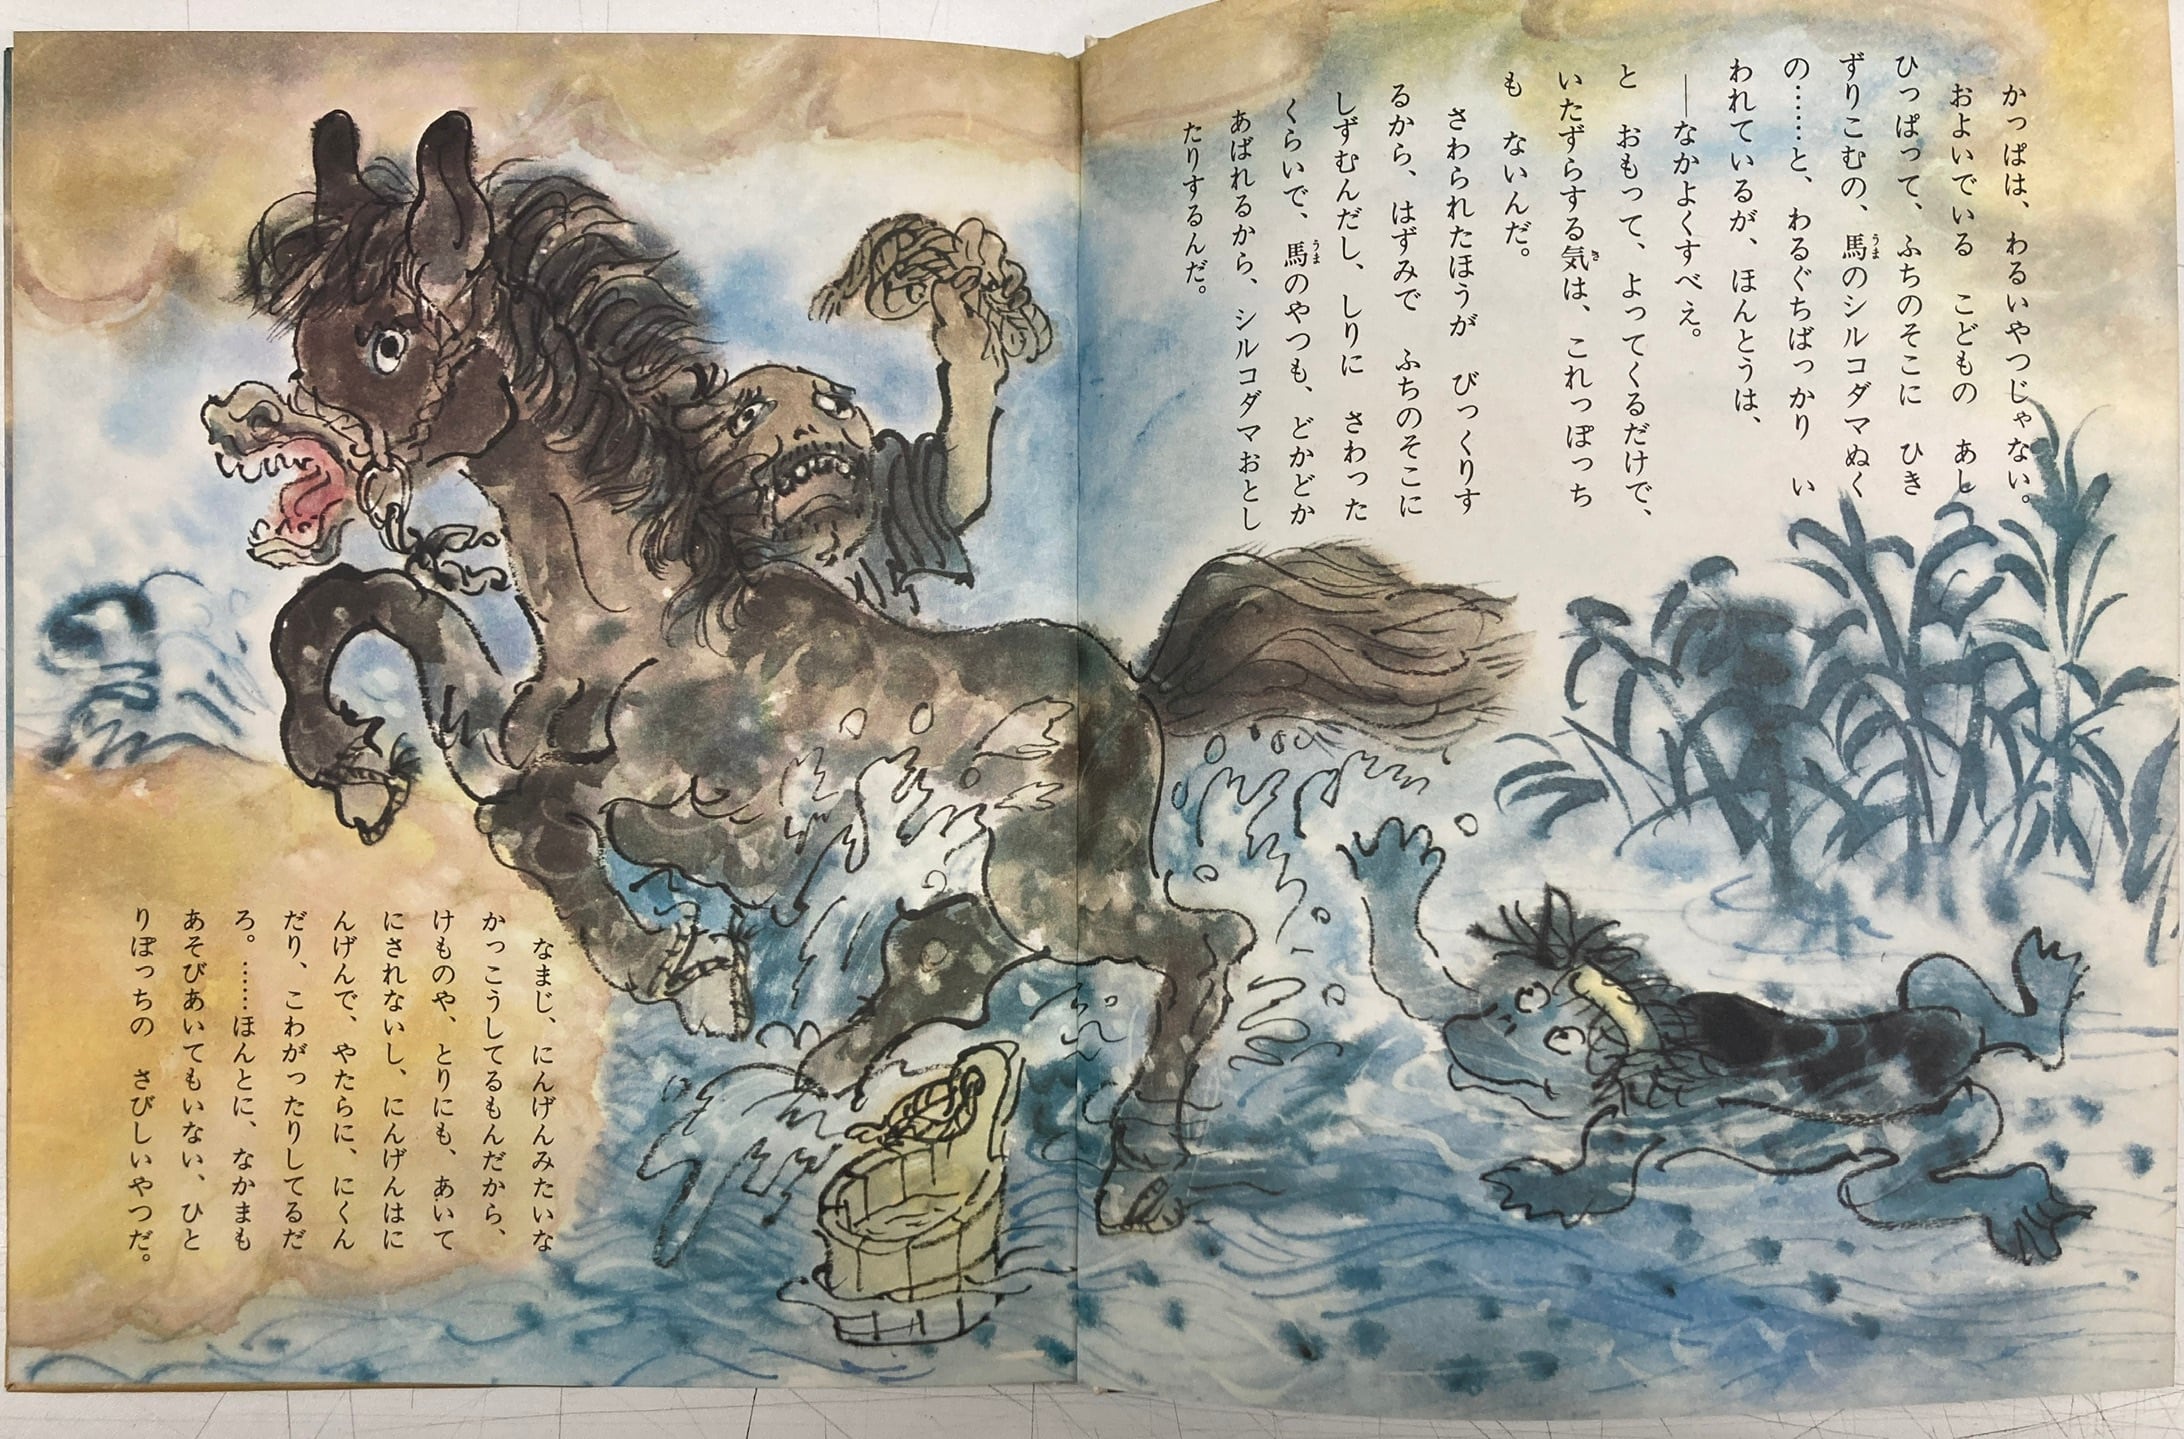 かっぱは、わるいやつじゃない。
およいでいる　こどもの　あし
ひっぱって、ふちのそこに　ひき
ずりこむの、馬のシルコダマぬく
の……と、わるぐちばっかり　い
われているが、ほんとうは、
――なかよくすべえ。
と　おもって、よってくるだけで、
いたずらする気は、これっぽっち
も　ないんだ。
さわられたほうが　びっくりす
るから、はずみで　ふちのそこに
しずむんだし、しりに　さわった
くらいで、馬のやつも、どかどか
あばれるから、シルコダマおとし
たりするんだ。
なまじ、にんげんみたいな
かっこうしてるもんだから、
けものや、とりにも、あいて
にされないし、にんげんはに
んげんで、やたらに、にくん
だり、こわがったりしてるだ
ろ。……ほんとに、なかまも
あそびあいてもいない、ひと
りぼっちの　さびしいやつだ。